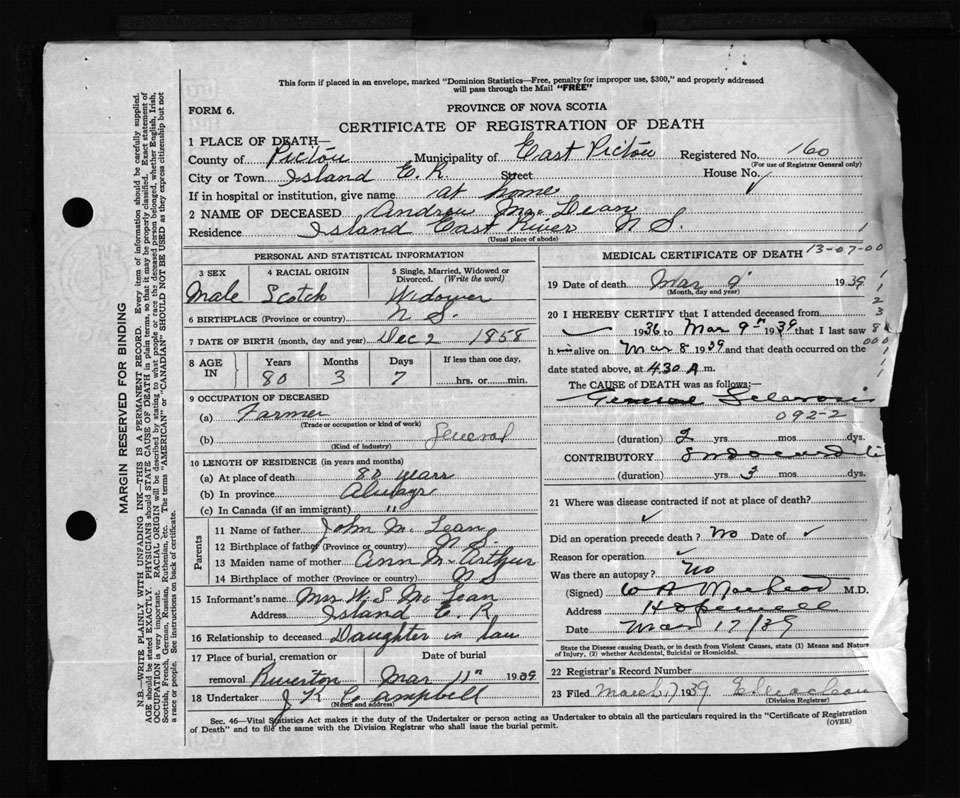 This form if placed in an envelope, marked "Dominion Statistics—Free, penalty for improper use, $300," and properly addressed
will pass through the Mail "FREE"
FORM 6.
PROVINCE OF NOVA SCOTIA
CERTIFICATE OF REGISTRATION OF DEATH
1 PLACE OF DEATH—
County of Pictou Municipality of East Pictou Registered No. 160
(For use of Registrar General only)
City or Town Island E. R. Street House No.
If in hospital or institution, give name at home
2 NAME OF DECEASED Andrew Mc Lean
Residence Island East River N S.
(Usual place of abode)
PERSONAL AND STATISTICAL INFORMATION
3 SEX 4 RACIAL ORIGIN 5 Single, Married, Widowed or Divorced. (Write the word)
Male Scotch Widower
6 BIRTHPLACE (Province or country) N S.
7 DATE OF BIRTH (month, day and year) Dec 2 1858
8 AGE IN Years Months Days If less than one day,
80 3 7 hrs. or min.
9 OCCUPATION OF DECEASED
(a) Farmer
(Trade or occupation or kind of work)
(b) General
(Kind of industry)
10 LENGTH OF RESIDENCE (in years and months)
(a) At place of death 80 years
(b) In province Always
(c) In Canada (if an immigrant) "
Parents
11 Name of father John Mc Lean
12 Birthplace of father (Province or country) N S.
13 Maiden name of mother Ann McArthur
14 Birthplace of mother (Province or country) N S
15 Informant's name Mrs W. S Mc Lean
Address Island E. R
16 Relationship to deceased Daughter in law
17 Place of burial, cremation or Date of burial
removal Riverton Mar 11th 1939
18 Undertaker J K Campbell
(Name and address)
MEDICAL CERTIFICATE OF DEATH 13-07-00
19 Date of death Mar 9 1939
(Month, day and year)
20 I HEREBY CERTIFY that I attended deceased from
1936 to Mar 9th 1939 that I last saw
him alive on Mar 8 1939 and that death occurred on the
date stated above, at 4.30 A.m.
The CAUSE of DEATH was as follows:—
General Sclerosis
092-2
(duration) 2 yrs. mos. dys.
CONTRIBUTORY Endocarditis
(duration) 3 yrs. mos. dys.
21 Where was disease contracted if not at place of death?
Did an operation precede death? No Date of
Reason for operation
Was there an autopsy? No
(Signed) W A MacLeod M.D.
Address Hopewell
Date Mar 17/39
State the Disease causing Death, or in death from Violent Causes, state (1) Means and Nature
of Injury, (2) whether Accidental, Suicidal or Homicidal.
22 Registrar's Record Number
23 Filed March 17 1939
(Division Registrar)
Sec. 46—Vital Statistics Act makes it the duty of the Undertaker or person acting as Undertaker to obtain all the particulars required in the "Certificate of Registration
of Death" and to file the same with the Division Registrar who shall issue the burial permit.
(OVER)
MARGIN RESERVED FOR BINDING
N.B.—WRITE PLAINLY WITH UNFADING INK—THIS IS A PERMANENT RECORD. Every item of information should be carefully supplied.
AGE should be stated EXACTLY. PHYSICIANS should STATE CAUSE OF DEATH in plain terms, so that it may be properly classified. Exact statement of
OCCUPATION is very important. RACIAL ORIGIN will be described by stating to what people or race the deceased person belonged, whether English, Irish,
Scottish, French, German, Russian, Ruthenian, etc. The terms "AMERICAN" or "CANADIAN" SHOULD NOT BE USED as they express citizenship but not
a race or people. See instructions on back of certificate.